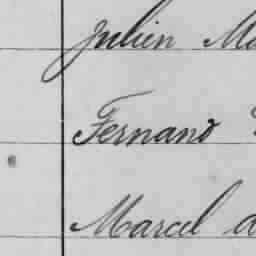 Julien
Fernand
Marcel